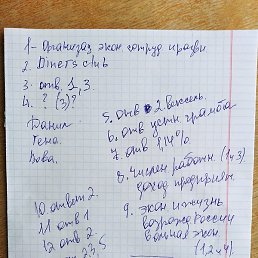 1- Организац экон сотруд и разви
2 Diners club
3. отв. 1, 3.
4. ? (3)?
Данил
Гена.
Вова.
5. отв 2 вексель.
6. отв устн грамота
7. отв 1,14%
8. Числен работн. (1и3)
доход предприят.
9. экон и жизнь
возрожд России
вольная экон.
(1,2 и 4).
10 ответ 2.
11 отв 1
12 отв 2